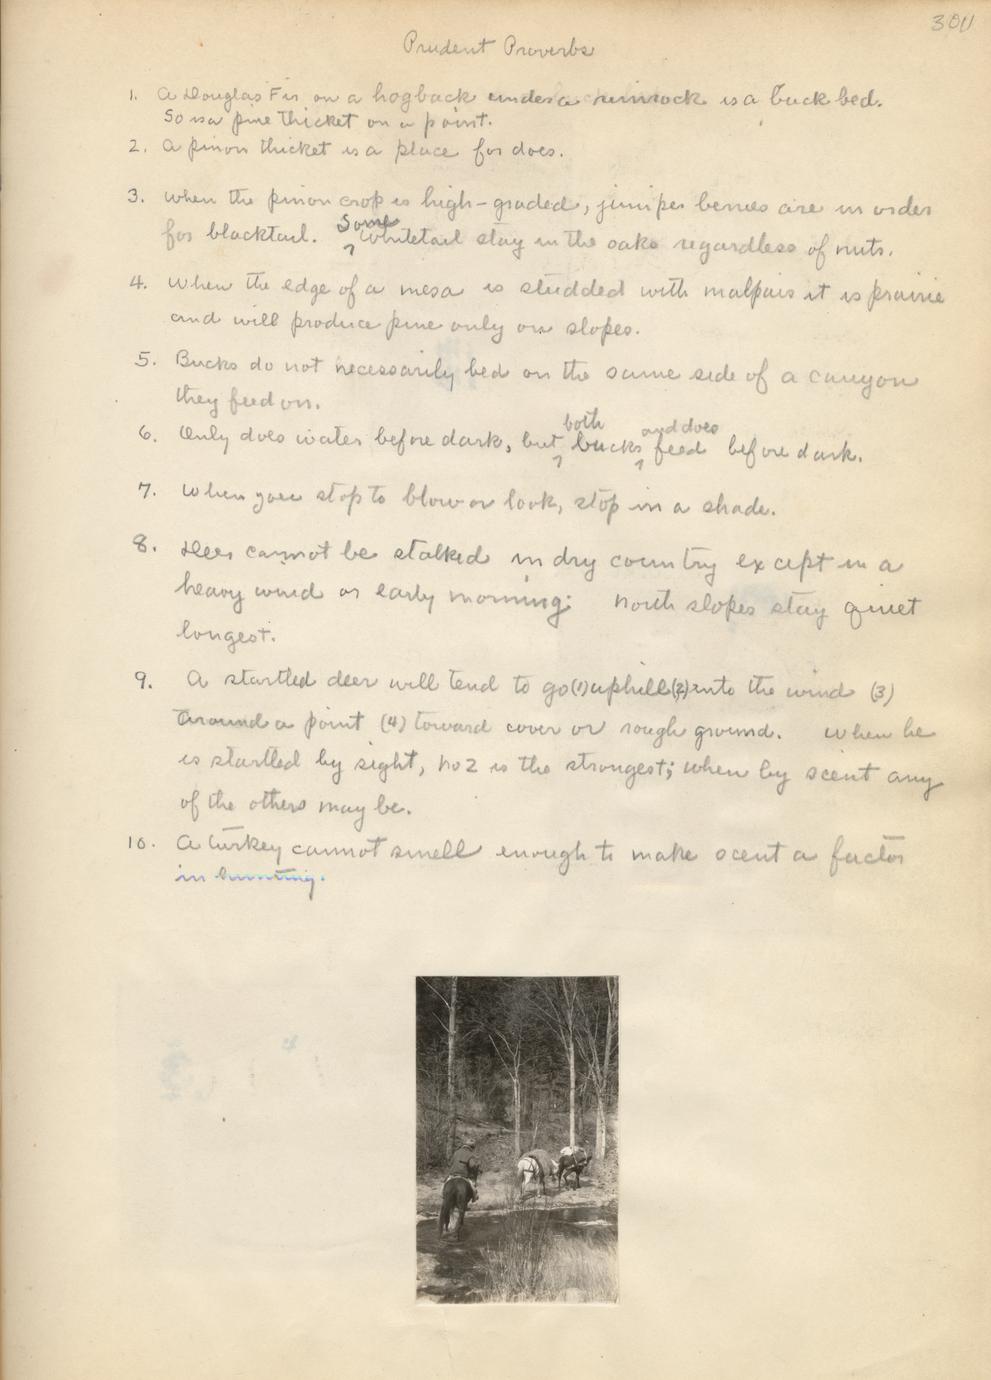 300
Prudent Proverbs
1. A Douglas Fir on a hogback under a rimrock is a buck bed.
So is a pine thicket on a point.
2. A pinon thicket is a place for does.
3. When the pinon crop is high-graded, juniper berries are in order
for blacktail. Some Whitetail stay in the oaks regardless of nuts.
4. When the edge of a mesa is studded with malpais it is prairie
and will produce pine only on slopes.
5. Bucks do not necessarily bed on the same side of a canyon
they feed on.
6. Only does water before dark, but both bucks and does feed before dark.
7. When you stop to blow or look, stop in a shade.
8. Deer cannot be stalked in dry country except in a
heavy wind or early morning; North slopes stay quiet
longest.
9. A startled deer will tend to go (1) uphill (2) into the wind (3)
around a point (4) toward cover or rough ground. When he
is startled by sight, no 2 is the strongest; when by scent any
of the others may be.
10. A turkey cannot smell enough to make scent a factor
in hunting.